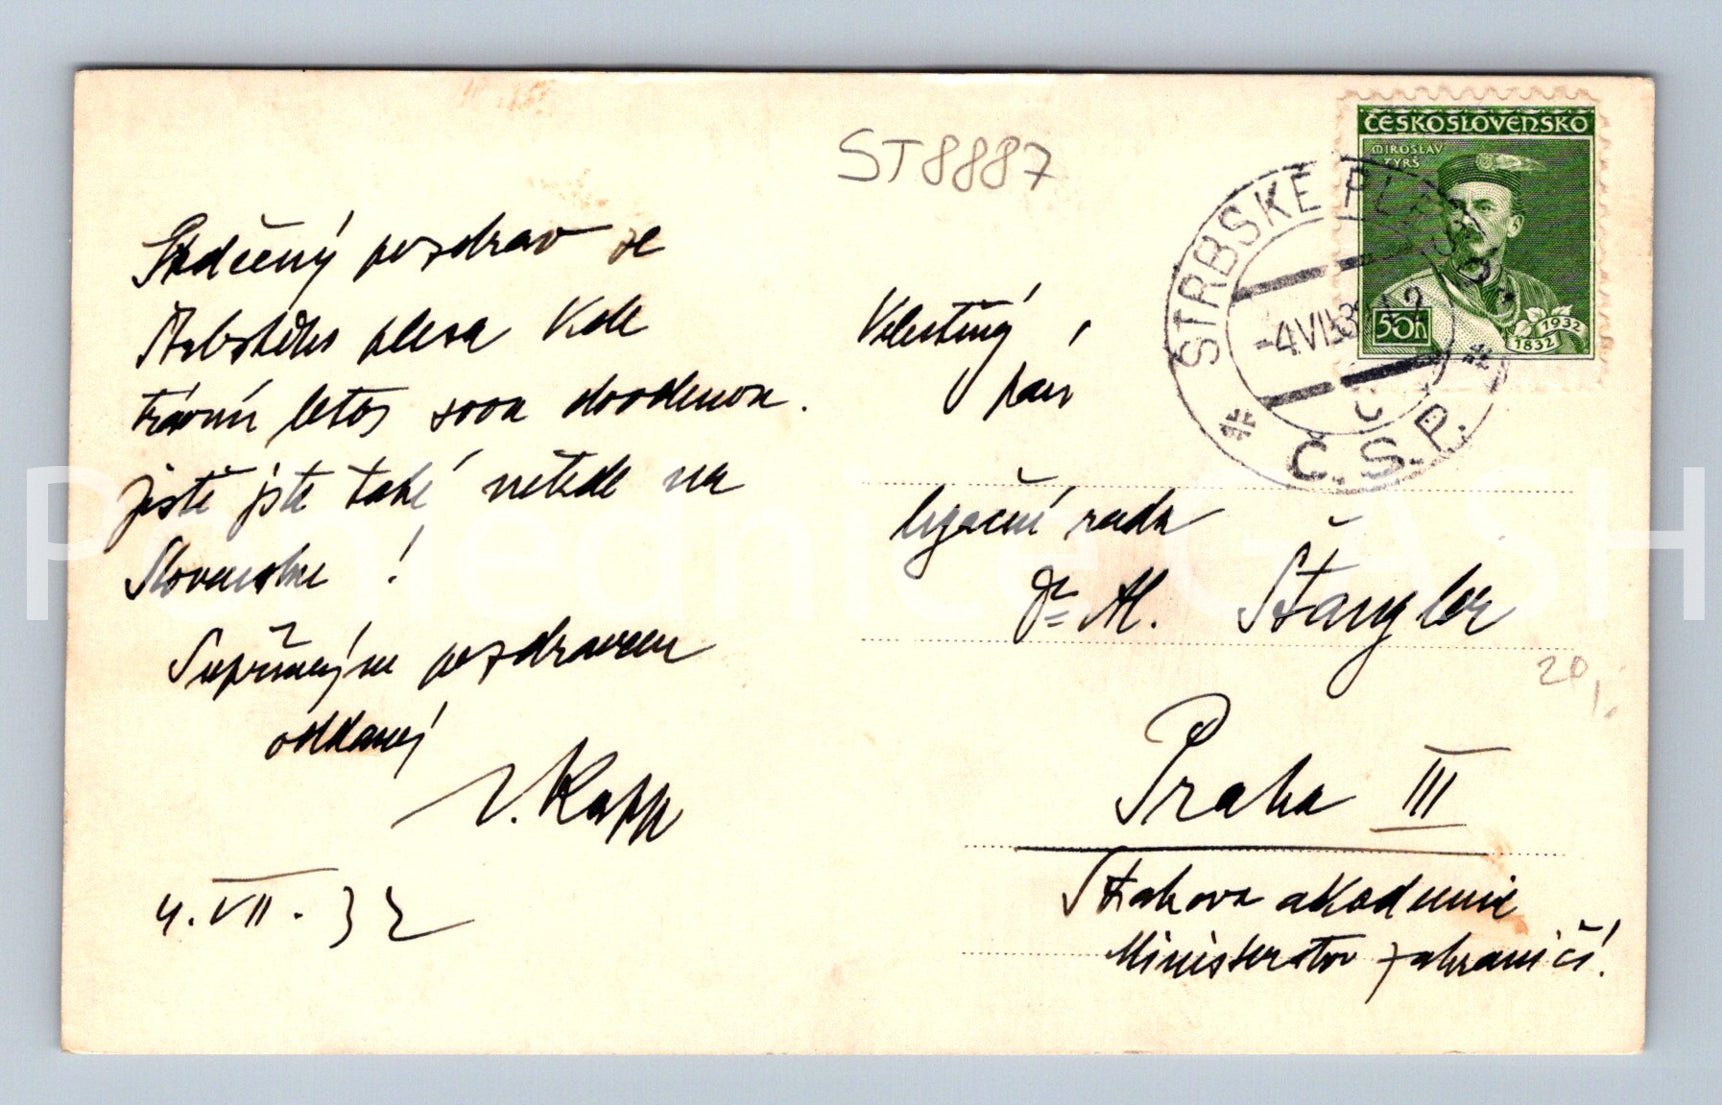 ST8887
ČESKOSLOVENSKO
MIROSLAV
TYRŠ
50h
1932
1832
ŠTRBSKÉ PLESO
-4.VII.32
Č.S.P.
Srdečný pozdrav ze
Štrbského plesa kde
trávím letos svou dovolenou.
Jistě jste také někde na
Slovensku!
S upřímným pozdravem
oddaný
V. Kapp
4.VII.32
Velectěný
pán
legační rada
Dr Al. Štangler
Praha III
Strakova akademie
Ministerstvo zahraničí.
20,-
Pohlednice GASH